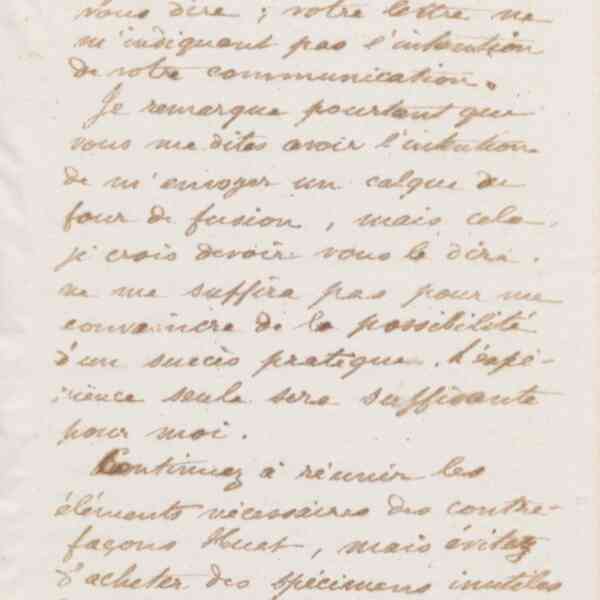 vous dire ; votre lettre ne
m'indiquant pas l'intention
de votre communication.
Je remarque pourtant que
vous me dites avoir l'intention
de m'envoyer un calque du
four de fusion, mais cela,
je crois devoir vous le dire,
ne me suffira pas pour me
convaincre de la possibilité
d'un succès pratique. L'expé-
rience seule sera suffisante
pour moi.
Continuez à réunir les
éléments nécessaires des contre-
façons Huet, mais évitez
d'acheter des spécimens inutiles